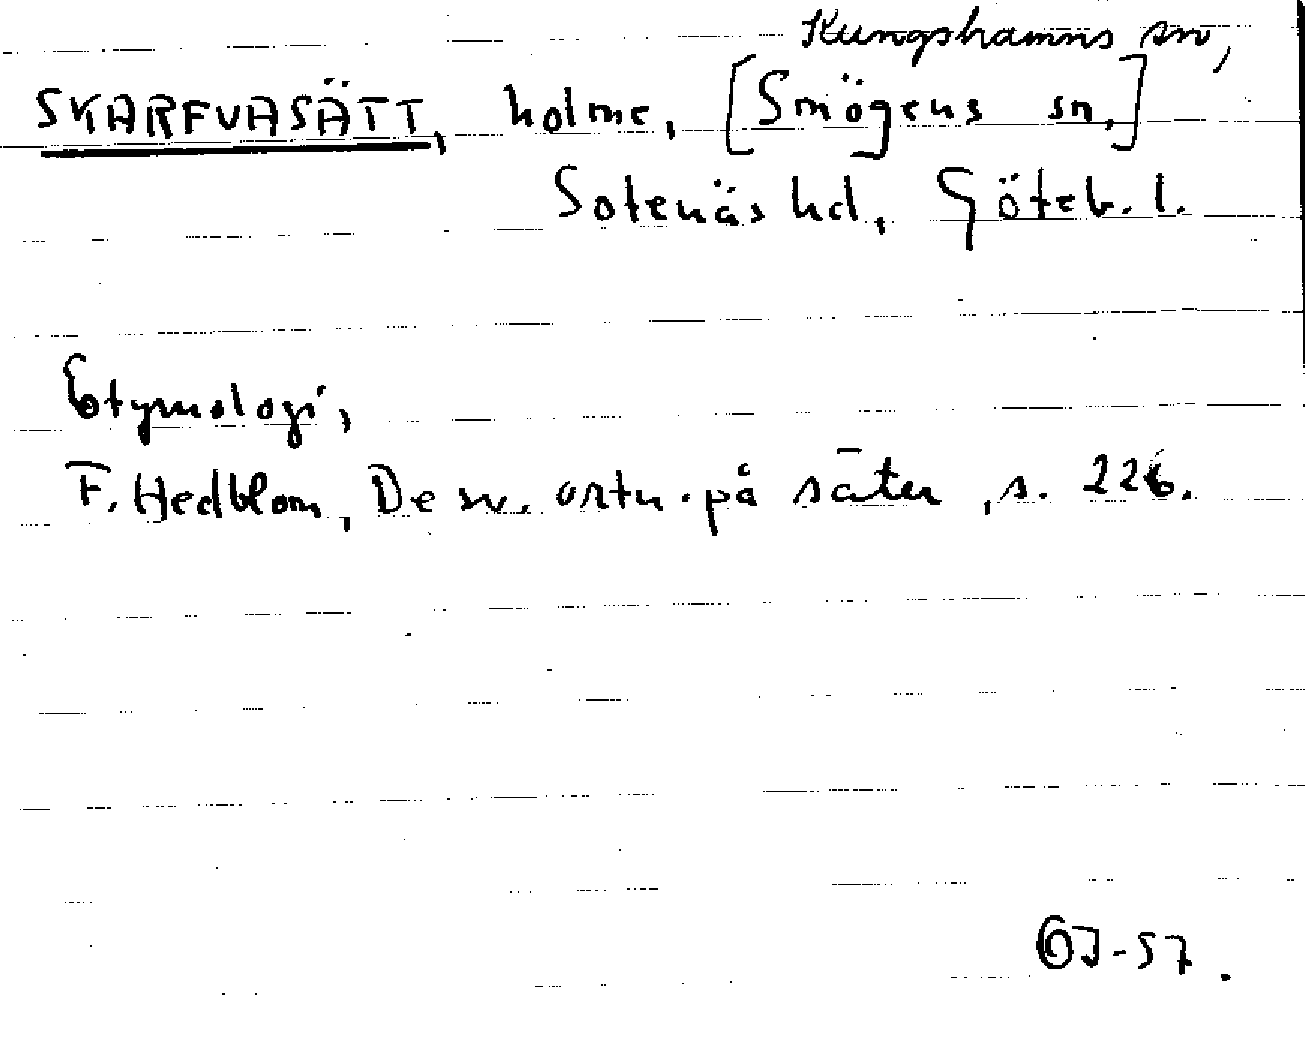 Kungshamns sn,
SKARFVASÄTT, holme, [Smögens sn,]
Sotenäs hd, Göteb. l.
Etymologi,
F. Hedblom, De sv. ortn. på säter, s. 226.
-57.